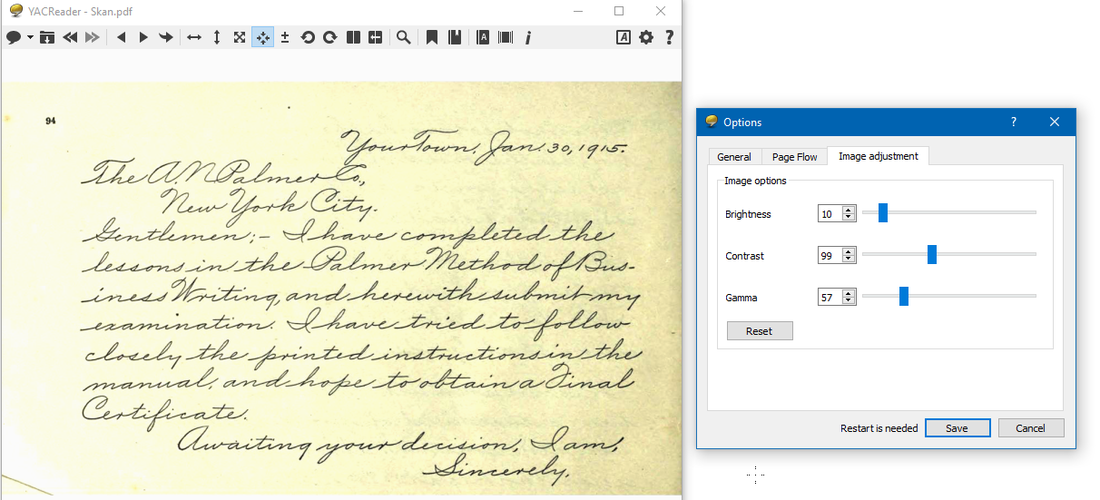 YACReader - Skan.pdf
94
Your Town, Jan. 30, 1915.
The A. N. Palmer Co.,
New York City.
Gentlemen:- I have completed the
lessons in the Palmer Method of Bus-
iness Writing, and herewith submit my
examination. I have tried to follow
closely the printed instructions in the
manual, and hope to obtain a Final
Certificate.
Awaiting your decision, I am,
Sincerely,
Options
General Page Flow Image adjustment
Image options
Brightness 10
Contrast 99
Gamma 57
Reset
Restart is needed Save Cancel